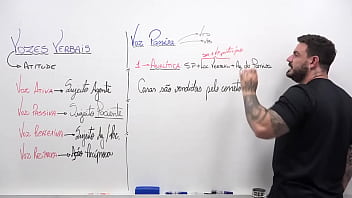 Vozes Verbais
→ Atitude
Voz Ativa → Sujeito Agente
Voz Passiva → Sujeito Paciente
Voz Reflexiva → Sujeito Ag/Pac.
Voz Recíproca → Ação
Voz Passiva
1 → Analítica S.P + Loc Verbal + Ag da Passiva
Casas são vendidas pelo